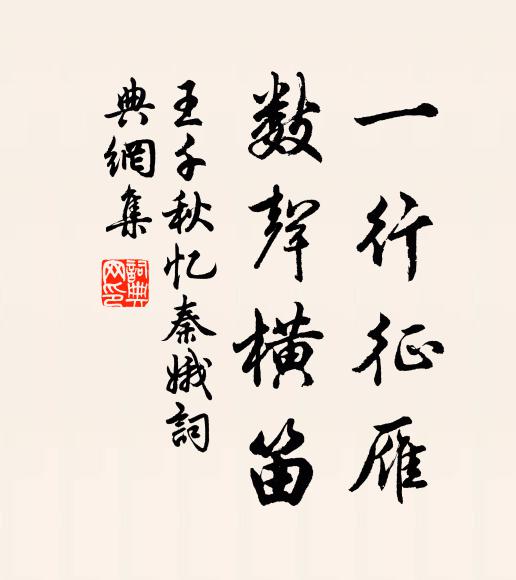 一行征雁
数聲橫笛
王千秋忆秦娥詞
典網集
詞典
网印